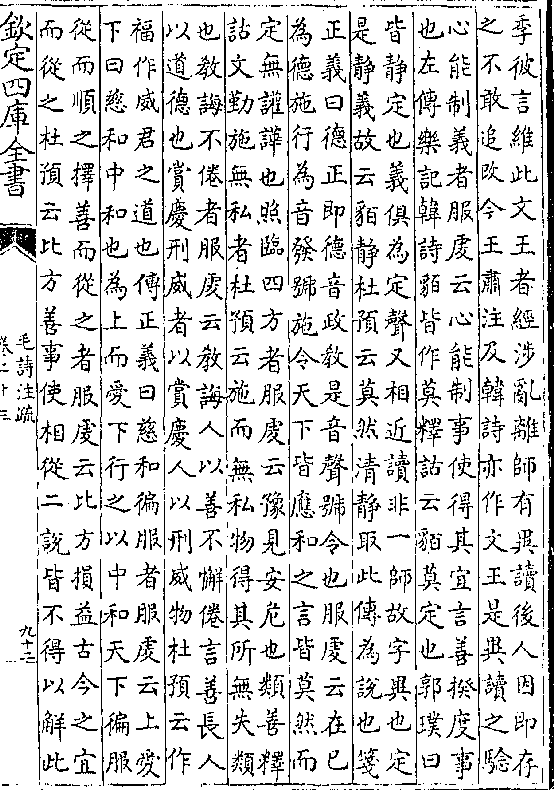 季彼言維此文王者經涉亂離師有異讀後人因即存
之不敢追改今王肅注及韓詩亦作文王是異讀之驗
心能制義者服䖍云心能制事使得其宜言善揆度事
也左傳樂記韓詩貊皆作莫釋詁云貊莫定也郭璞曰
皆静定也義俱為定聲又相近讀非一師故字異也定
是静義故云貊静杜預云莫然清静取此傳為說也箋
正義曰德正即德音政教是音聲號令也服䖍云在已
為德施行為音發號施令天下皆應和之言皆莫然而
定無讙譁也照臨四方者服䖍云豫見安危也類善釋
詁文勤施無私者杜預云施而無私物得其所無失類
也教誨不倦者服䖍云教誨人以善不懈倦言善長人
以道德也賞慶刑威者以賞慶人以刑威物杜預云作
福作威君之道也傳正義曰慈和徧服者服䖍云上愛
下曰慈和中和也為上而愛下行之以中和天下徧服
從而順之擇善而從之者服䖍云比方損益古今之宜
而從之杜預云比方善事使相從二說皆不得以解此
欽定四庫全書
毛詩注疏
卷二十三
九十三